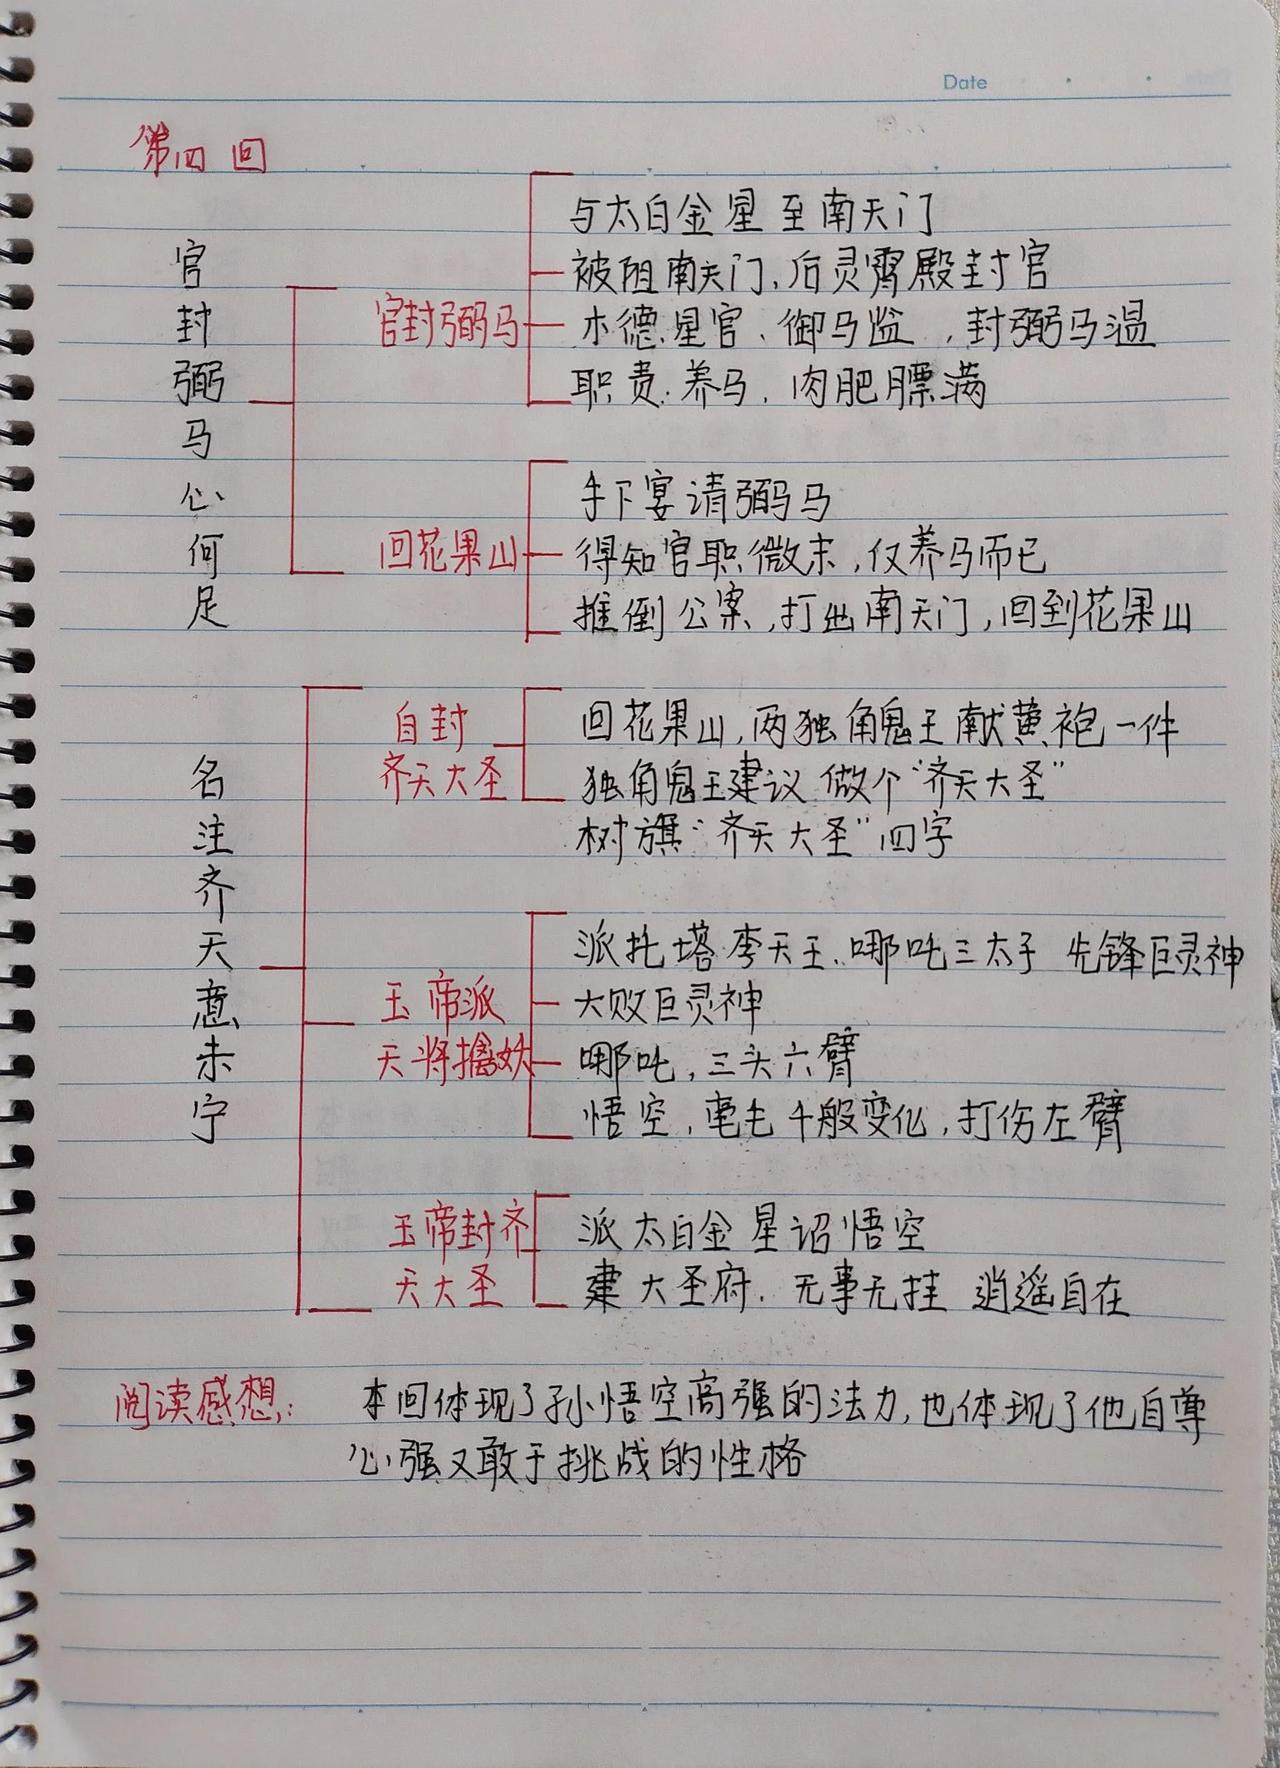 Date
第四回
官封弼马心何足
官封弼马
与太白金星至南天门
被阻南天门,后灵霄殿封官
木德星官、御马监,封弼马温
职责:养马,肉肥膘满
回花果山
手下宴请弼马
得知官职微末,仅养马而已
推倒公案,打出南天门,回到花果山
名注齐天意未宁
自封
齐天大圣
回花果山,两独角鬼王献黄袍一件
独角鬼王建议做个“齐天大圣”
树旗“齐天大圣”四字
玉帝派
天将擒妖
派托塔李天王、哪吒三太子 先锋巨灵神
大败巨灵神
哪吒,三头六臂
悟空,毫毛千般变化,打伤左臂
玉帝封齐
天大圣
派太白金星诏悟空
建大圣府,无事无挂 逍遥自在
阅读感想: 本回体现了孙悟空高强的法力,也体现了他自尊
心强又敢于挑战的性格